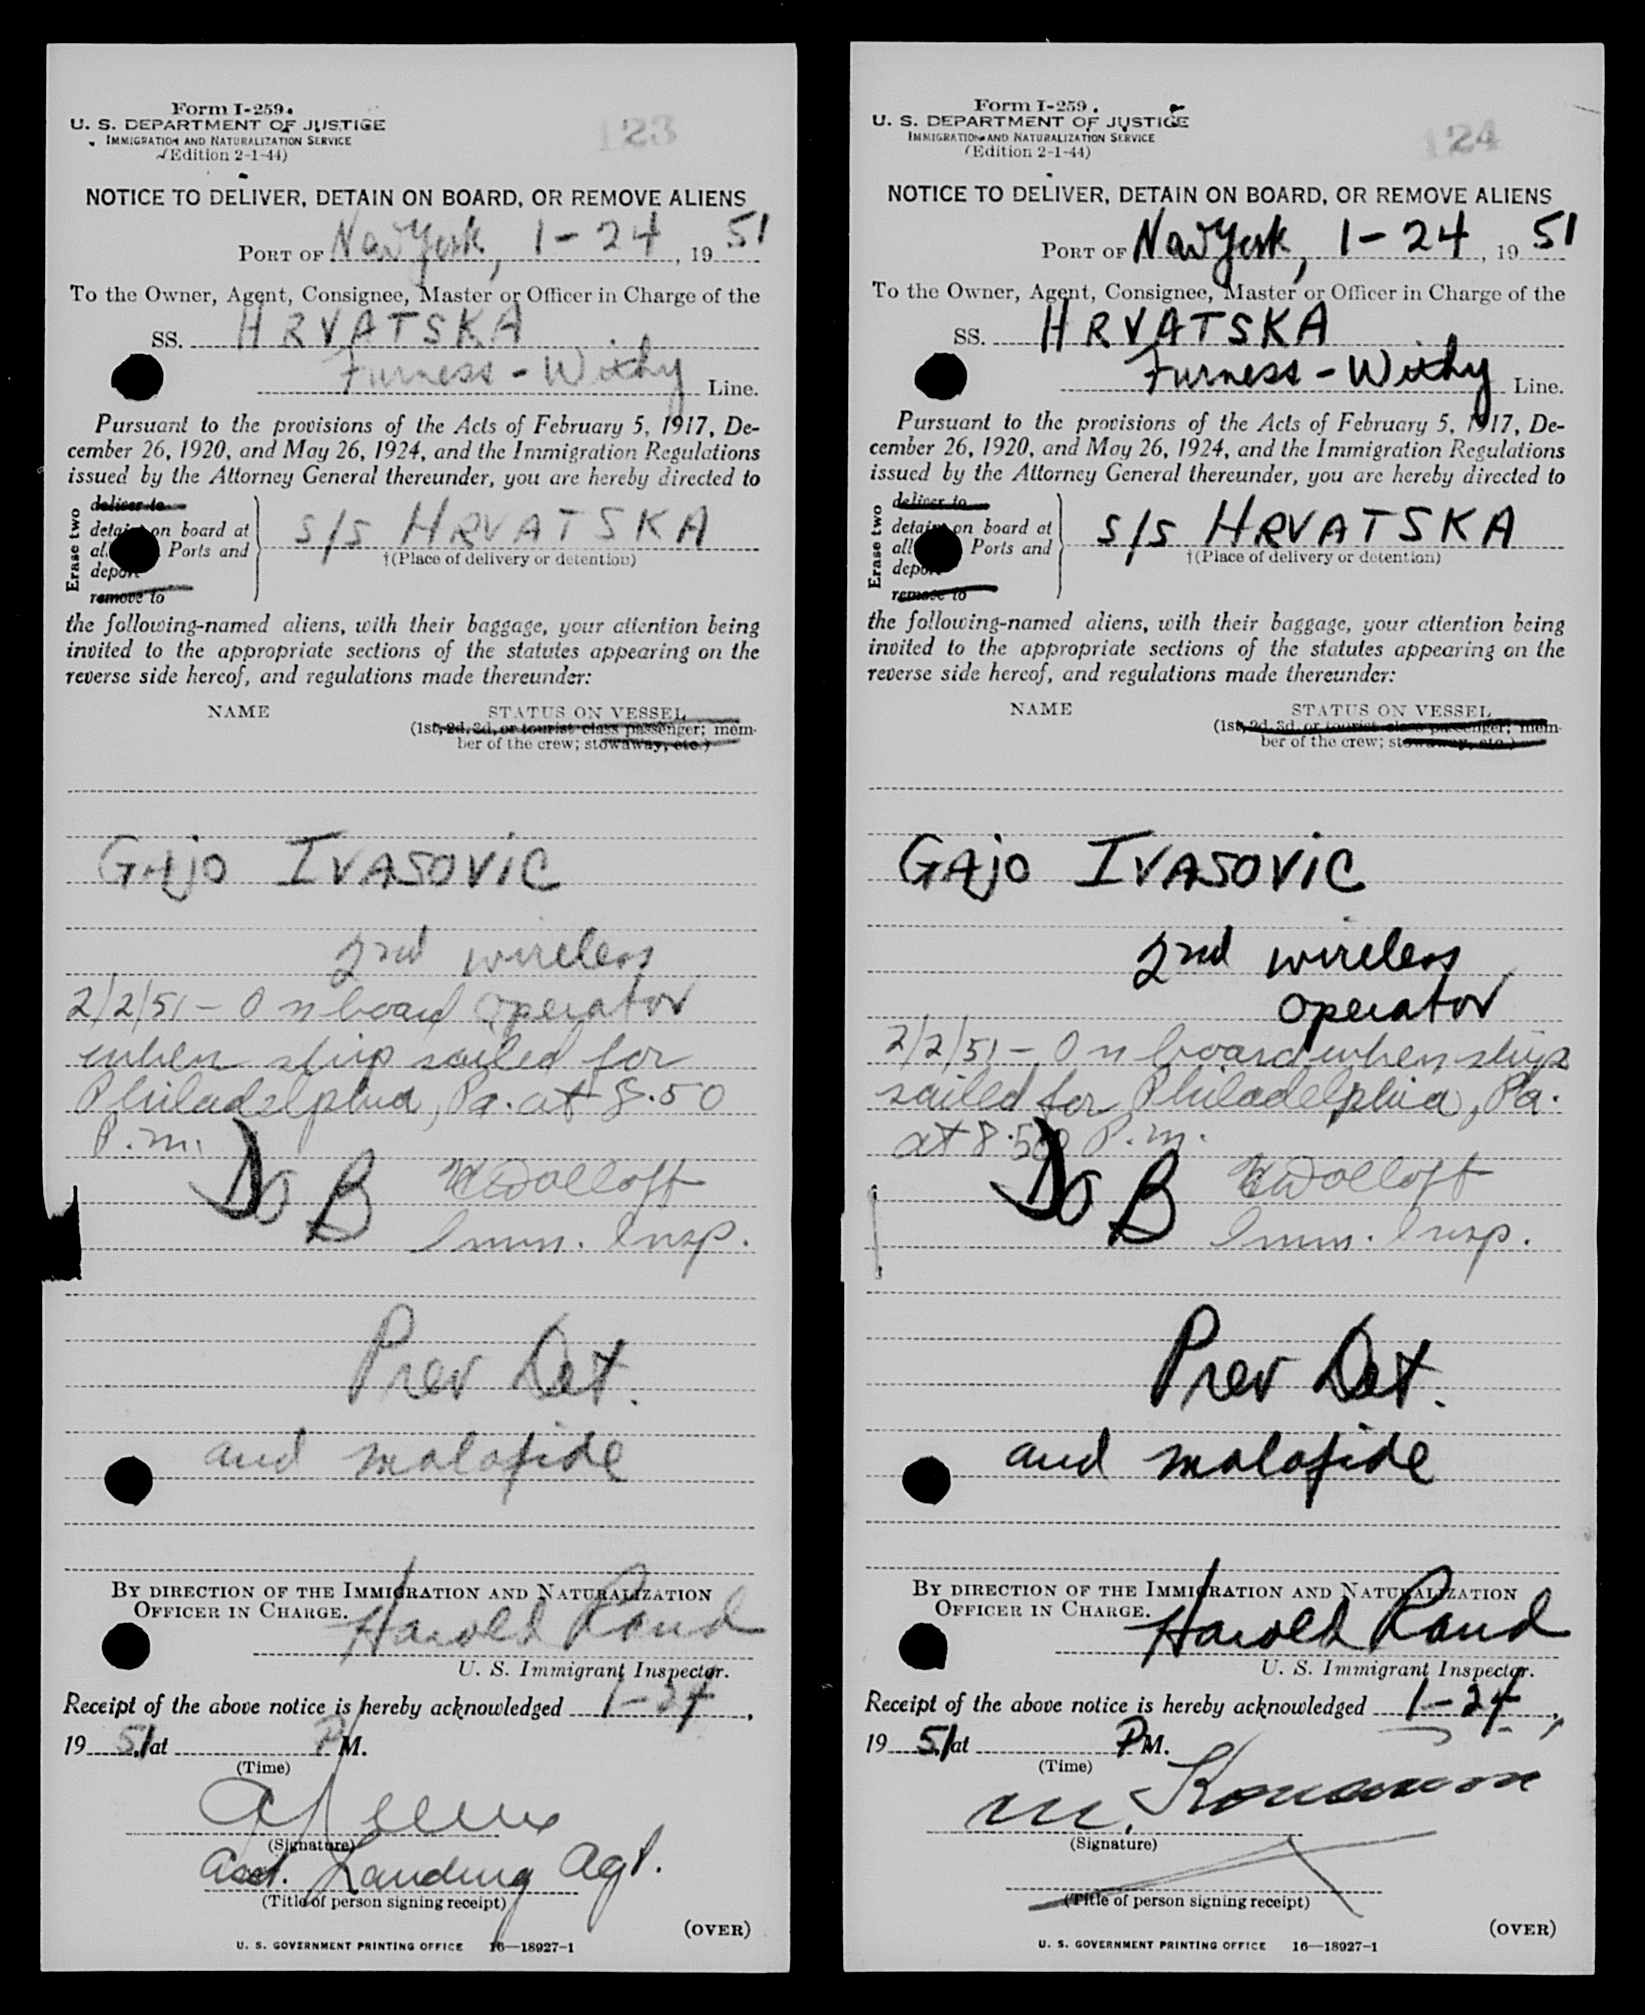 Form I-259.
U. S. DEPARTMENT OF JUSTICE
IMMIGRATION AND NATURALIZATION SERVICE
(Edition 2-1-44)
123
NOTICE TO DELIVER, DETAIN ON BOARD, OR REMOVE ALIENS
PORT OF New York, 1-24, 19 51
To the Owner, Agent, Consignee, Master or Officer in Charge of the
SS. HRVATSKA
Furness - Withy Line.
Pursuant to the provisions of the Acts of February 5, 1917, De-
cember 26, 1920, and May 26, 1924, and the Immigration Regulations
issued by the Attorney General thereunder, you are hereby directed to
Erase two
deliver to
detain on board at
all Ports and
deport
remove to
S/S HRVATSKA
†(Place of delivery or detention)
the following-named aliens, with their baggage, your attention being
invited to the appropriate sections of the statutes appearing on the
reverse side hereof, and regulations made thereunder:
NAME STATUS ON VESSEL
(1st, 2d, 3d, or tourist class passenger; mem-
ber of the crew; stowaway, etc.)
GAjO IVASOViC
2nd wireless
operator
2/2/51 - On board
when ship sailed for
Philadelphia, Pa. at 8.50
P.m.
D O B
Imm. Insp.
Prev Det.
and malafide
BY DIRECTION OF THE IMMIGRATION AND NATURALIZATION
OFFICER IN CHARGE.
Harold Rand
U. S. Immigrant Inspector.
Receipt of the above notice is hereby acknowledged 1-24,
19 51, at P M.
(Time)
(Signature)
Asst. Landing Agt.
(Title of person signing receipt)
(OVER)
U. S. GOVERNMENT PRINTING OFFICE 16—18927-1
Form I-259.
U. S. DEPARTMENT OF JUSTICE
IMMIGRATION AND NATURALIZATION SERVICE
(Edition 2-1-44)
124
NOTICE TO DELIVER, DETAIN ON BOARD, OR REMOVE ALIENS
PORT OF New York, 1-24, 19 51
To the Owner, Agent, Consignee, Master or Officer in Charge of the
SS. HRVATSKA
Furness - Withy Line.
Pursuant to the provisions of the Acts of February 5, 1917, De-
cember 26, 1920, and May 26, 1924, and the Immigration Regulations
issued by the Attorney General thereunder, you are hereby directed to
Erase two
deliver to
detain on board at
all Ports and
deport
remove to
S/S HRVATSKA
†(Place of delivery or detention)
the following-named aliens, with their baggage, your attention being
invited to the appropriate sections of the statutes appearing on the
reverse side hereof, and regulations made thereunder:
NAME STATUS ON VESSEL
(1st, 2d, 3d, or tourist class passenger; mem-
ber of the crew; stowaway, etc.)
GAjO IVASOViC
2nd wireless
operator
2/2/51 - On board when ship
sailed for Philadelphia, Pa.
at 8.50 P.m.
D O B
Imm. Insp.
Prev Det.
and malafide
BY DIRECTION OF THE IMMIGRATION AND NATURALIZATION
OFFICER IN CHARGE.
Harold Rand
U. S. Immigrant Inspector.
Receipt of the above notice is hereby acknowledged 1-24,
19 51, at P M.
(Time)
(Signature)
(Title of person signing receipt)
(OVER)
U. S. GOVERNMENT PRINTING OFFICE 16—18927-1